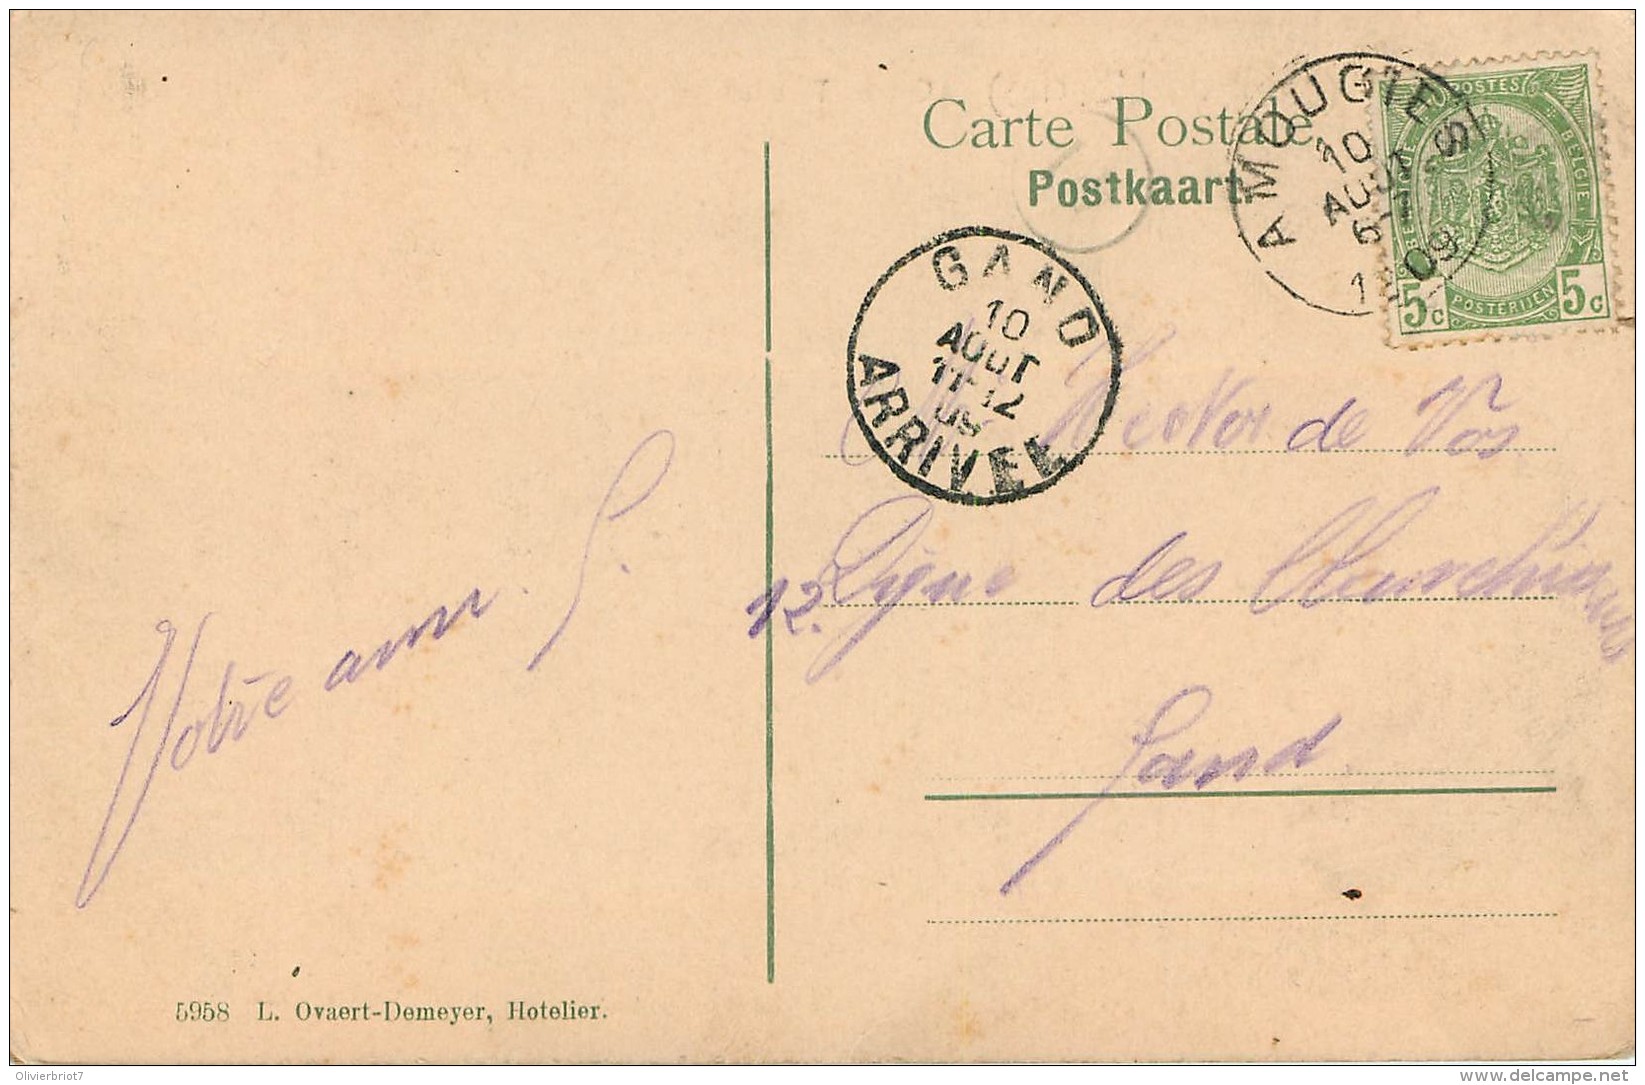 Carte Postale
Postkaart.
AMOUGIES
10
AOUT
6-7
1909
POSTES
BELGIQUE
BELGIE
POSTERIJEN
5c
5c
GAND
10
AOUT
11-12
09
ARRIVEE
Hector de Vos
12. Digue des
Gand
Votre ami S.
5958 L. Ovaert-Demeyer, Hotelier.
Olivierbriot7
delcampe.net